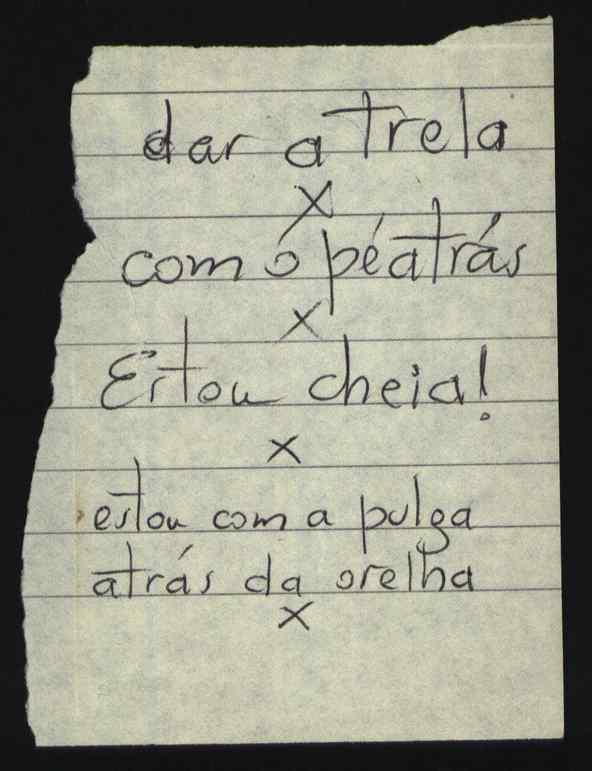 dar a trela
X
com o pé atrás
X
Estou cheia!
X
estou com a pulga
atrás da orelha
X